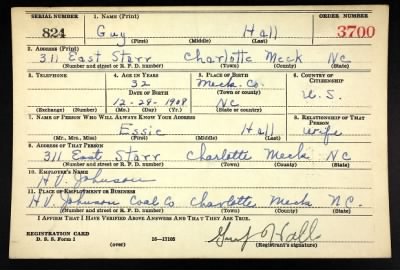 SERIAL NUMBER 1. NAME (Print) ORDER NUMBER
824 Guy Hall 3700
(First) (Middle) (Last)
2. ADDRESS (Print)
311 East Starr Charlotte Meck NC
(Number and street or R. F. D. number) (Town) (County) (State)
3. TELEPHONE 4. AGE IN YEARS 5. PLACE OF BIRTH 6. COUNTRY OF CITIZENSHIP
32 Meck. Co.
DATE OF BIRTH (Town or county)
12-29-1908 NC U.S.
(Exchange) (Number) (Mo.) (Day) (Yr.) (State or country)
7. NAME OF PERSON WHO WILL ALWAYS KNOW YOUR ADDRESS 8. RELATIONSHIP OF THAT PERSON
Essie Hall wife
(Mr., Mrs., Miss) (First) (Middle) (Last)
9. ADDRESS OF THAT PERSON
311 East Starr Charlotte Meck NC
(Number and street or R. F. D. number) (Town) (County) (State)
10. EMPLOYER'S NAME
H.V. Johnson
11. PLACE OF EMPLOYMENT OR BUSINESS
H.V. Johnson Coal Co Charlotte Meck N.C.
(Number and street or R. F. D. number) (Town) (County) (State)
I AFFIRM THAT I HAVE VERIFIED ABOVE ANSWERS AND THAT THEY ARE TRUE.
REGISTRATION CARD
D. S. S. Form 1 (over) 16-17105 Guy Hall
(Registrant's signature)